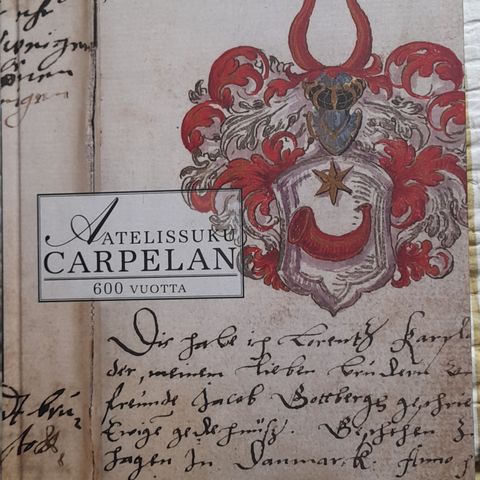 AATELISSUKU
CARPELAN
600 VUOTTA
Dis habe ich Lorentz Karpla
der, meinem lieben brudern
freunde Jacob Gottbergs geschrie
Ewige Geschehen
hagen In Danmarck. Anno